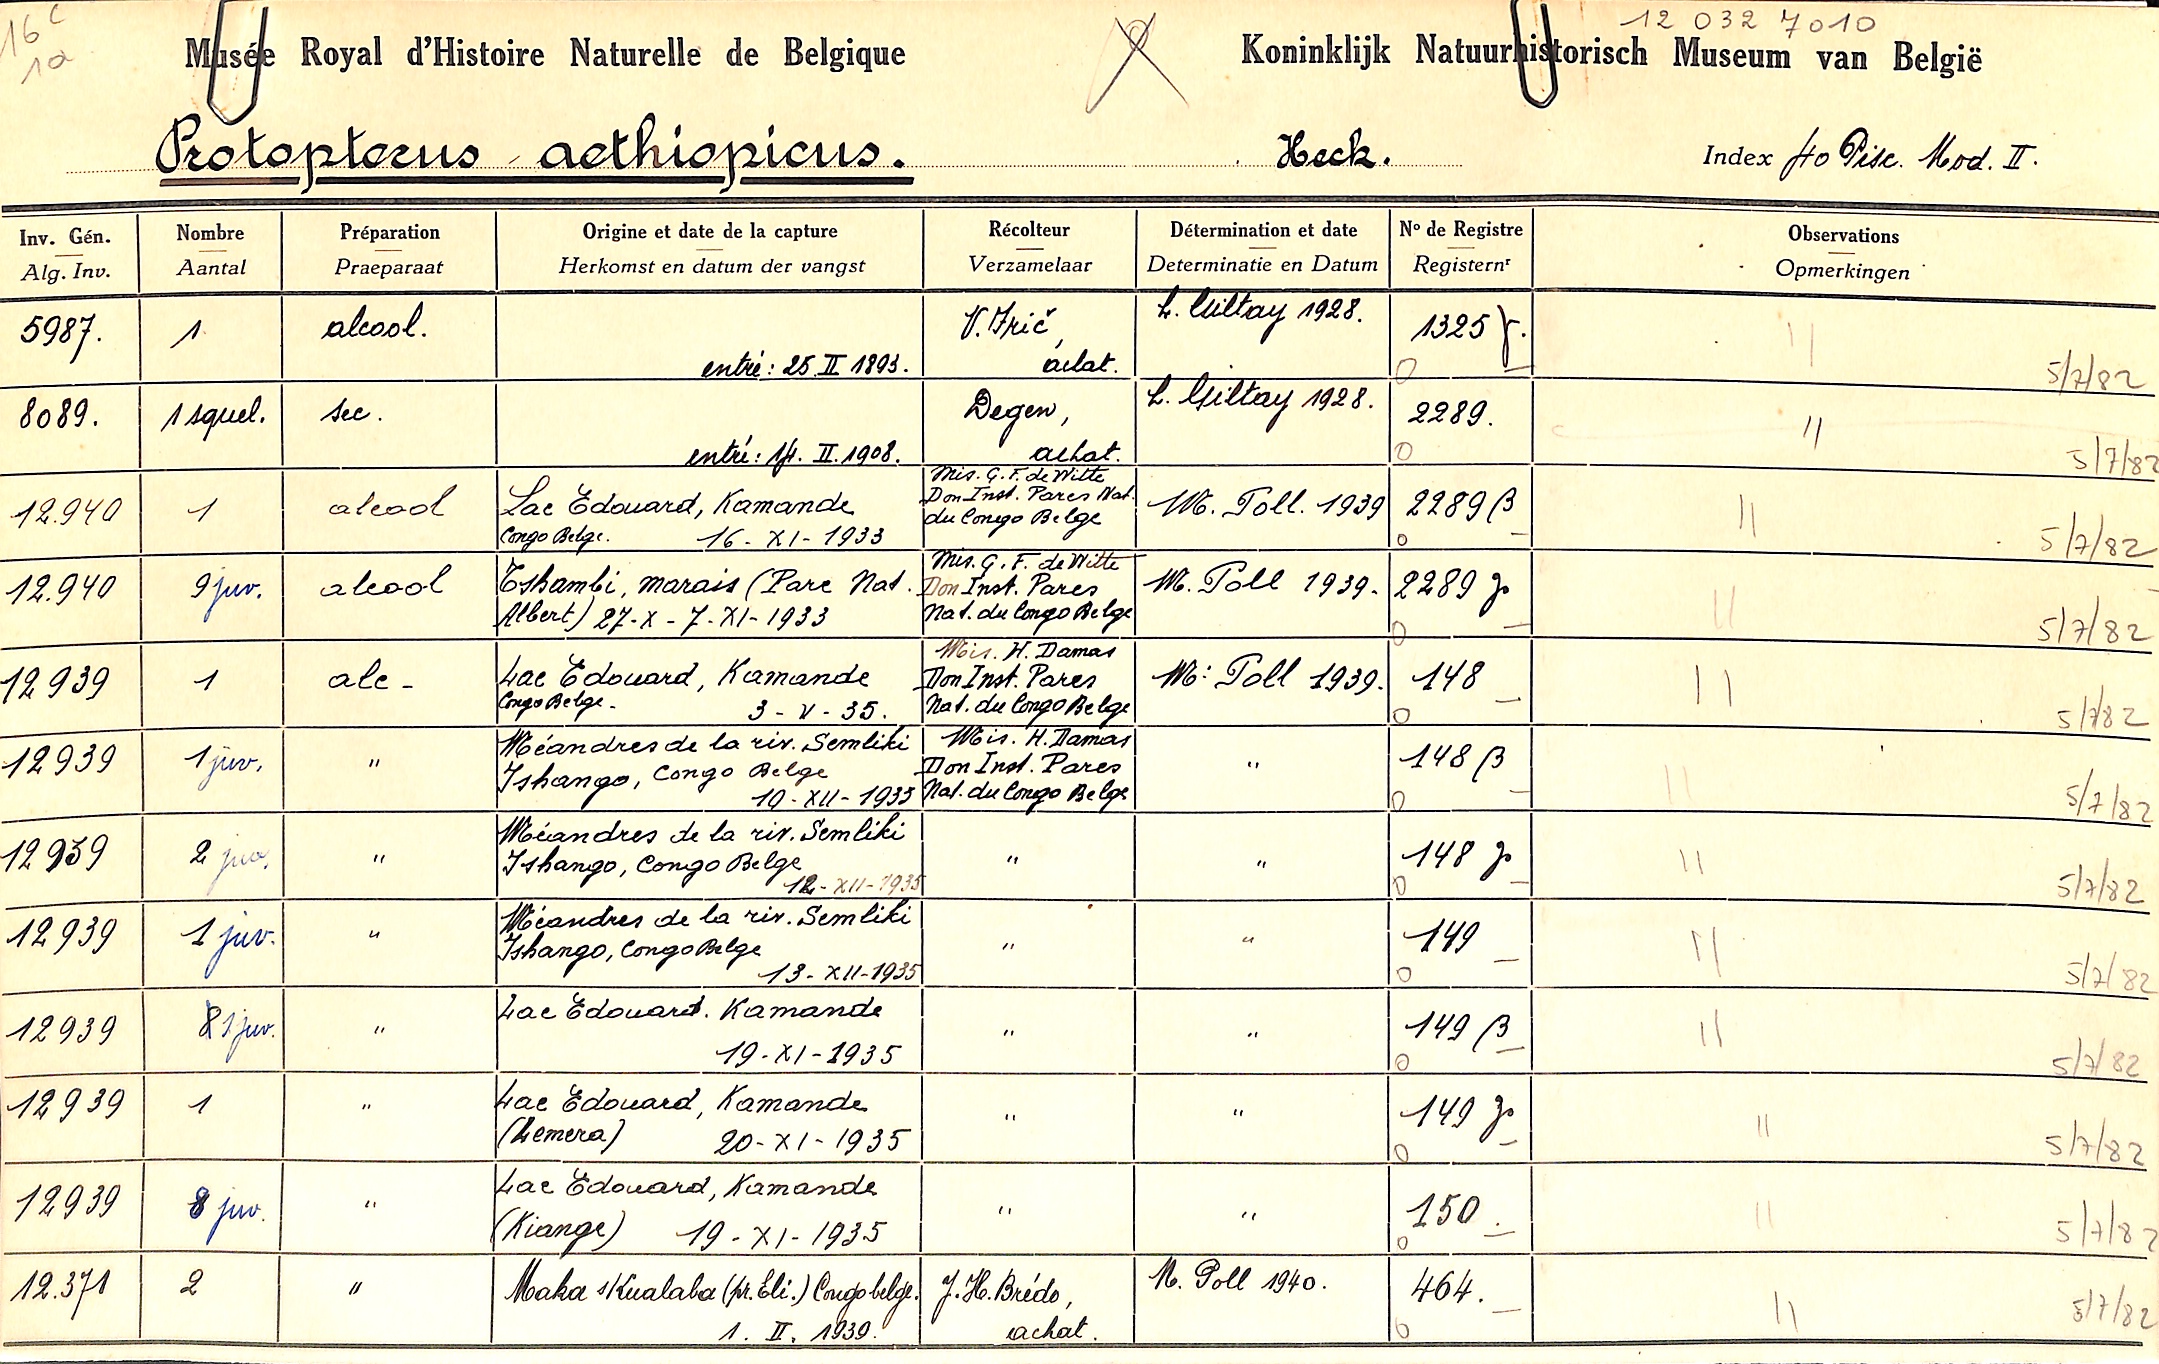 16 c
1a
12 032 7010
Musée Royal d'Histoire Naturelle de Belgique
Koninklijk Natuurhistorisch Museum van België
Protopterus aethiopicus. Heck. Index 40 Pisc. Mod. II.
Inv. Gén. Nombre Préparation Origine et date de la capture Récolteur Détermination et date Nº de Registre Observations
Alg. Inv. Aantal Praeparaat Herkomst en datum der vangst Verzamelaar Determinatie en Datum Registernr Opmerkingen
5987. 1 alcool. V. Frič, L. Giltay 1928. 1325 γ.
entré: 25 II 1893. achat. 5/7/82
8089. 1 squel. sec. Degen, L. Giltay 1928. 2289.
entré: 14. II. 1908. achat. 5/7/82
12.940 1 alcool Lac Edouard, Kamande Mis. G. F. de Witte M. Poll. 1939 2289 β
Congo Belge. 16-XI-1933 Don Inst. Parcs Nat. 5/7/82
du Congo Belge
12.940 9 juv. alcool Tshambi, marais (Parc Nat. Mis. G. F. de Witte M. Poll 1939. 2289 γ
Albert) 27-X-7-XI-1933 Don Inst. Parcs 5/7/82
Nat. du Congo Belge
12939 1 alc- Lac Edouard, Kamande Mis. H. Damas M. Poll 1939. 148
Congo Belge- 3-V-35. Don Inst. Parcs 5/7/82
Nat. du Congo Belge
12939 1 juv. " Méandres de la riv. Semliki Mis. H. Damas " 148 β
Ishango, Congo Belge Don Inst. Parcs
10-XII-1935 Nat. du Congo Belge 5/7/82
12939 2 juv. " Méandres de la riv. Semliki " " 148 γ
Ishango, Congo Belge
12-XII-1935 5/7/82
12939 1 juv. " Méandres de la riv. Semliki " " 149
Ishango, Congo Belge
13-XII-1935 5/7/82
12939 1 juv. " Lac Edouard. Kamande " " 149 β
19-XI-1935 5/7/82
12939 1 " Lac Edouard, Kamande " " 149 γ
(Lemera) 20-XI-1935 5/7/82
12939 8 juv. " Lac Edouard, Kamande " " 150.
(Kiange) 19-XI-1935 5/7/82
12.371 2 " Maka s/Kualaba (pr. Eli.) Congo belge. J. H. Brédo, M. Poll 1940. 464.
1. II. 1939. achat. 5/7/82